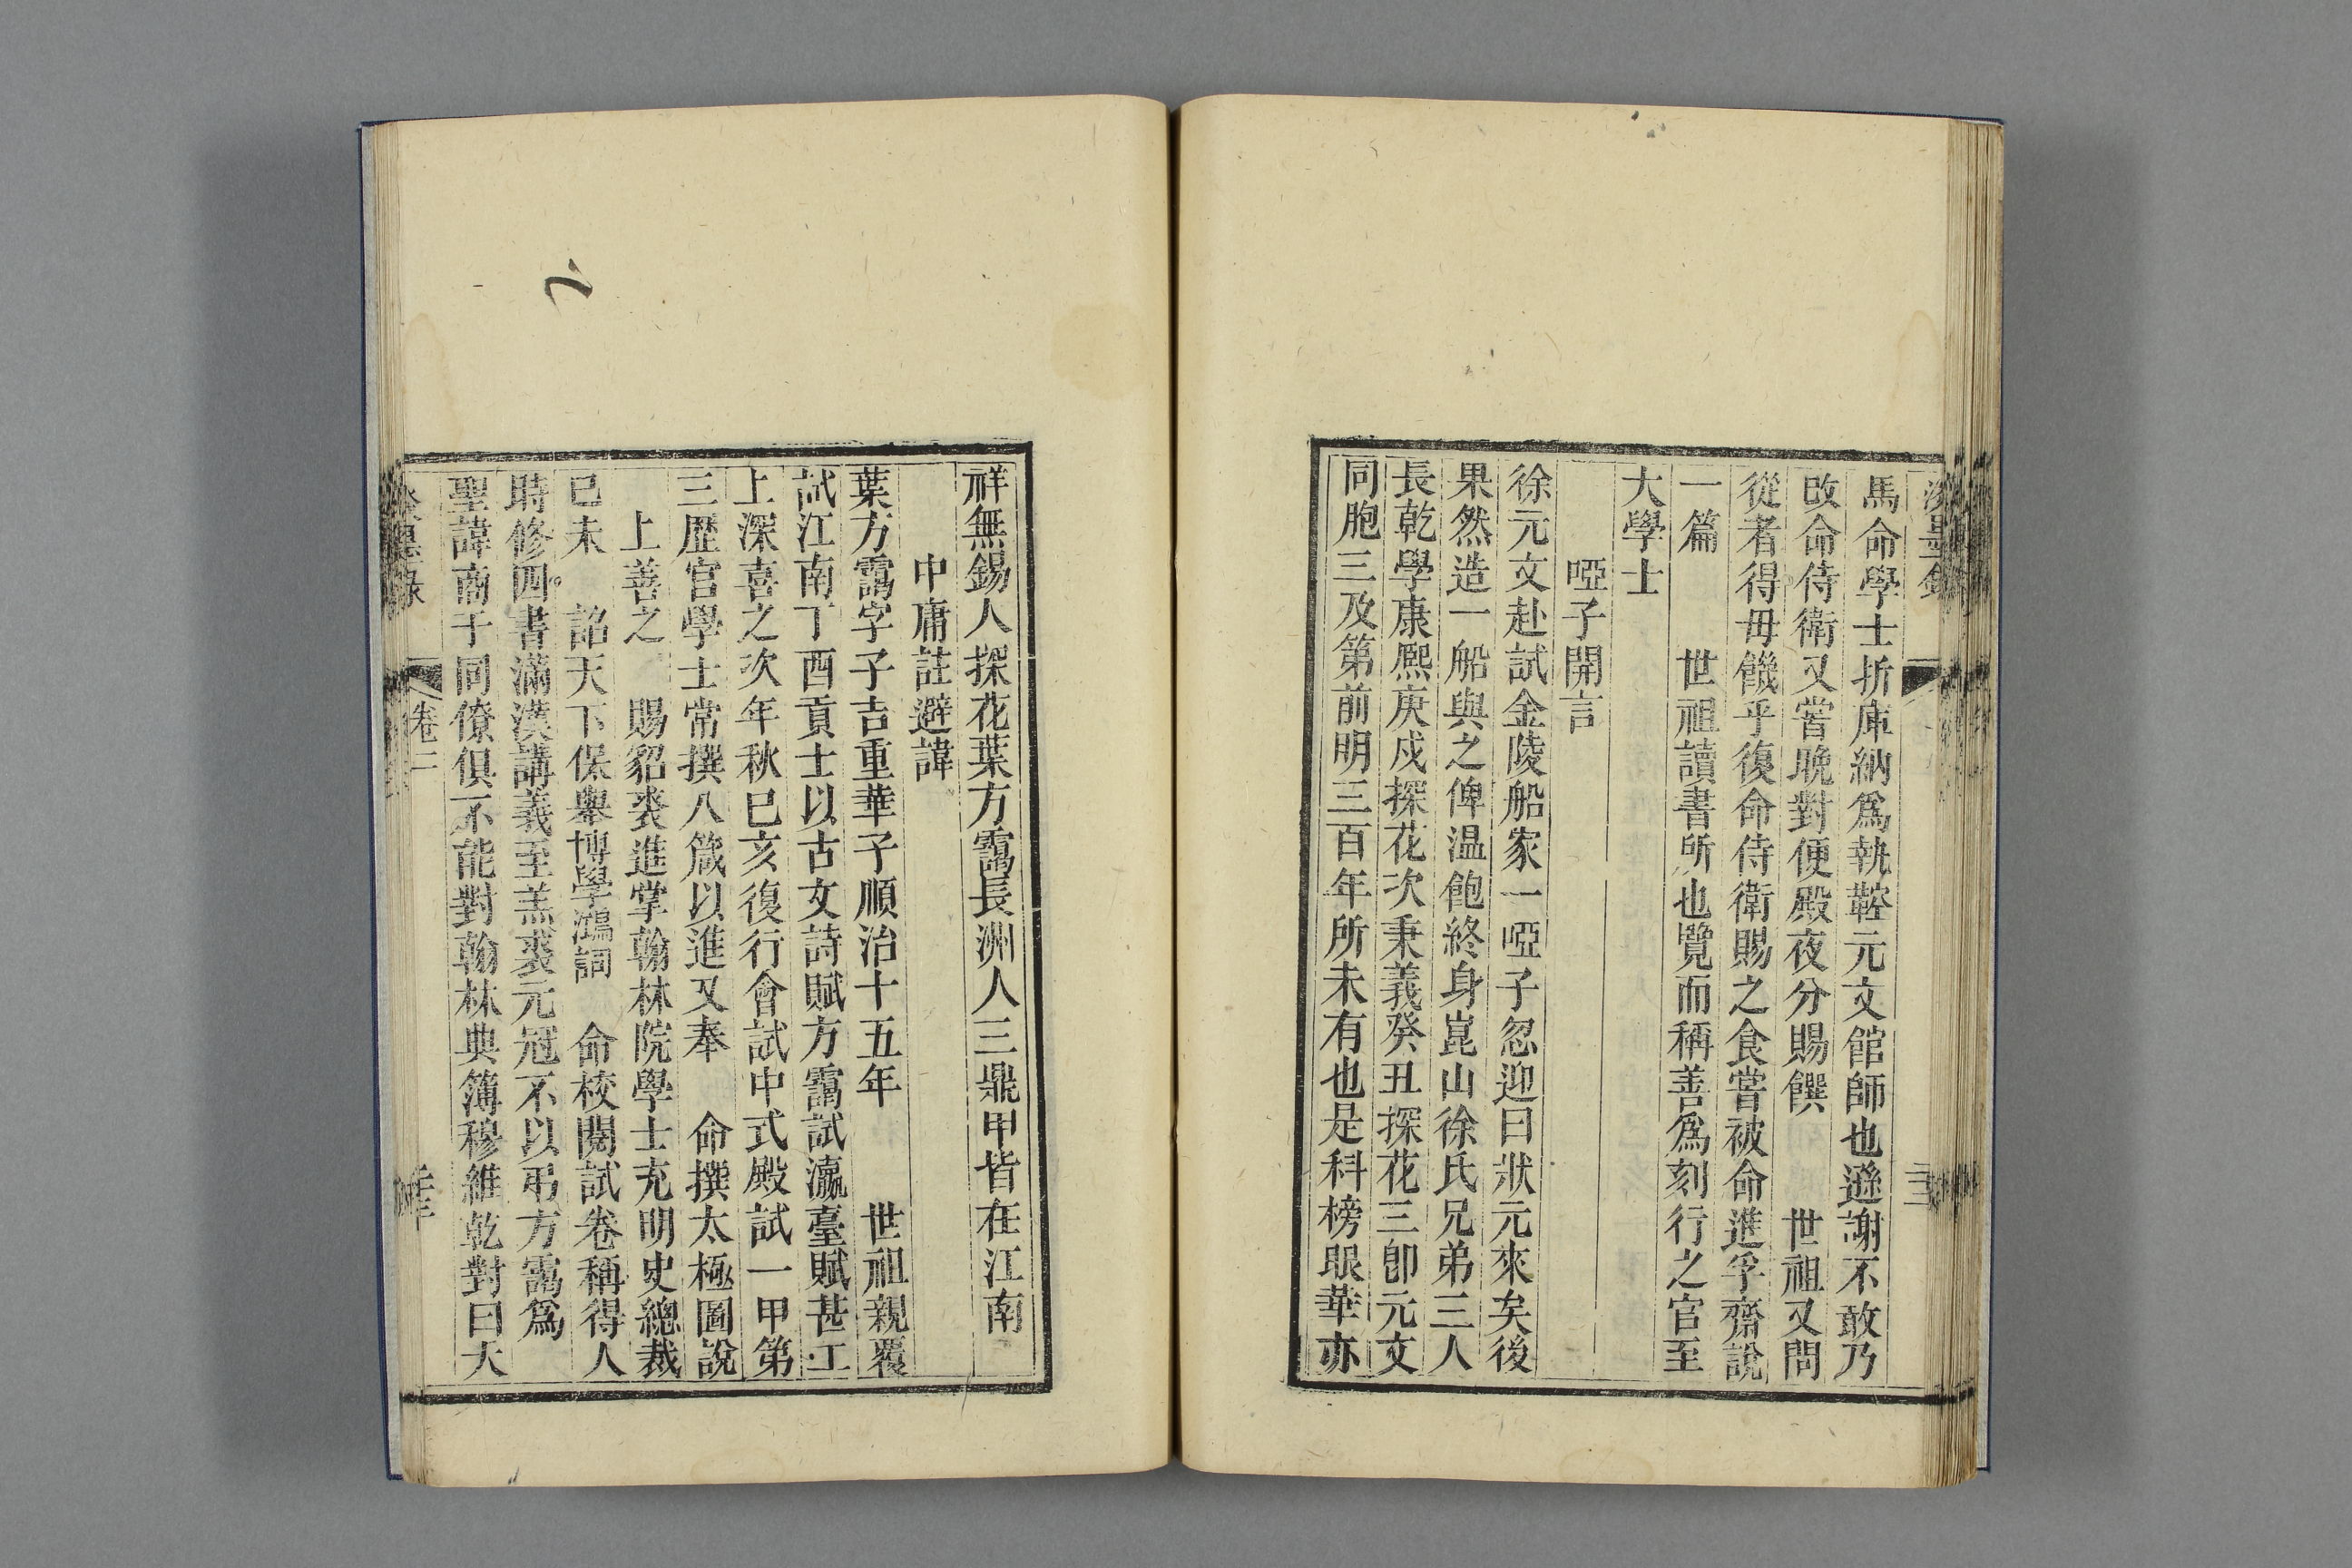 馬命學士折庫納爲執鞚元文館師也遜謝不敢乃
改命侍衛又嘗晚對便殿夜分賜饌　　世祖又問
從者得毋饑乎復命侍衛賜之食嘗被命進孚齋說
一篇　　世祖讀書所也覽而稱善爲刻行之官至
大學士
啞子開言
徐元文赴試金陵船家一啞子忽迎曰狀元來矣後
果然造一船與之俾温飽終身崑山徐氏兄弟三人
長乾學康熙庚戍探花次秉義癸丑探花三卽元文
同胞三及第前明三百年所未有也是科榜眼華亦
祥無錫人探花葉方靄長洲人三鼎甲皆在江南
中庸註避諱
葉方靄字子吉重華子順治十五年　　世祖親覆
試江南丁酉貢士以古文詩賦方靄試瀛臺賦甚工
上深喜之次年秋巳亥復行會試中式殿試一甲第
三歷官學士常撰八箴以進又奉　命撰太極圖說
上善之　賜貂裘進掌翰林院學士充明史總裁
已未　詔天下保舉博學鴻詞　命校閱試卷稱得人
時修四書滿漢講義至羔裘元冠不以弔方靄爲
聖諱商于同僚俱不能對翰林典簿穆維乾對曰大
卷二